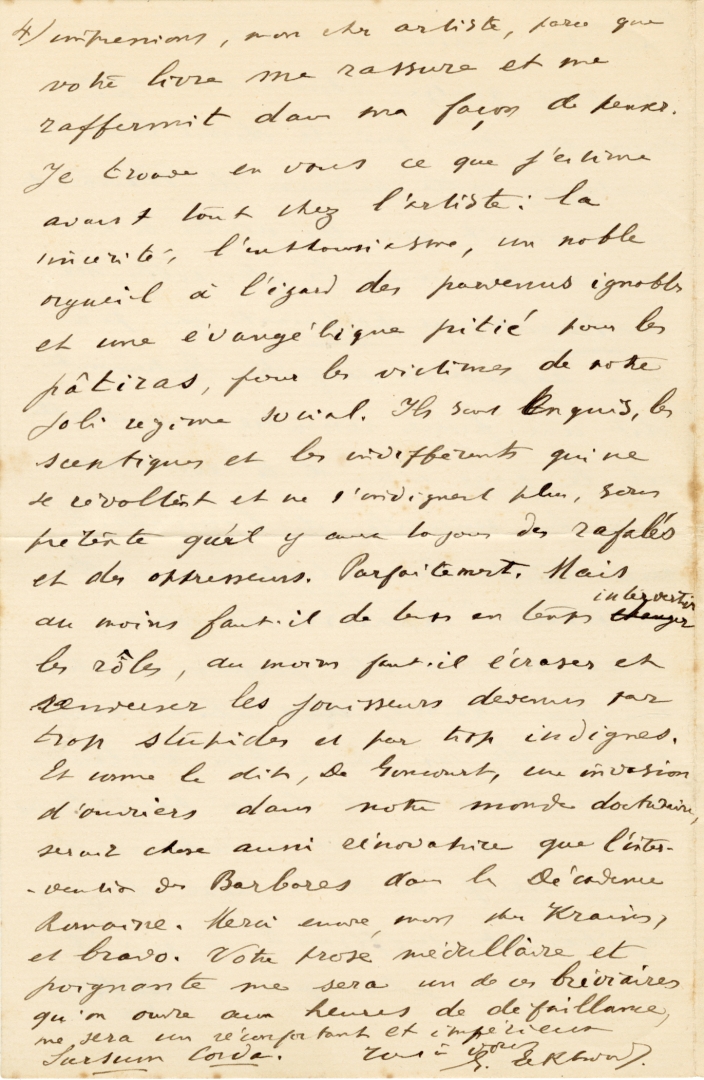 4) impressions, mon cher artiste, parce que
votre livre me rassure et me
raffermit dans ma façon de penser.
Je trouve en vous ce que j'estime
avant tout chez l'artiste: la
sincérité, l'enthousiasme, un noble
orgueil à l'égard des parvenus ignobles
et une évangélique pitié pour les
pâtiras, pour les victimes de notre
joli régime social. Ils sont exquis, les
sceptiques et les indifférents qui ne
se révoltent et ne s'indignent plus, sous
prétexte qu'il y aura toujours des rafalés
et des oppresseurs. Parfaitement. Mais
au moins faut-il de temps en temps intervertir
les rôles, au moins faut-il écraser et
renverser les jouisseurs devenus par
trop stupides et par trop indignes.
Et comme le dit, De Goncourt, une invasion
d'ouvriers dans notre monde doctrinaire,
serait chose aussi rénovatrice que l'inter-
-vention des Barbares dans la Décadence
Romaine. Merci encore, mon cher Krains,
et bravo. Votre prose médullaire et
poignante me sera un de ces bréviaires
qu'on ouvre aux heures de défaillance,
me sera un réconfortant et impérieux
Sursum Corda. Tout à vous
G. Eekhoud.